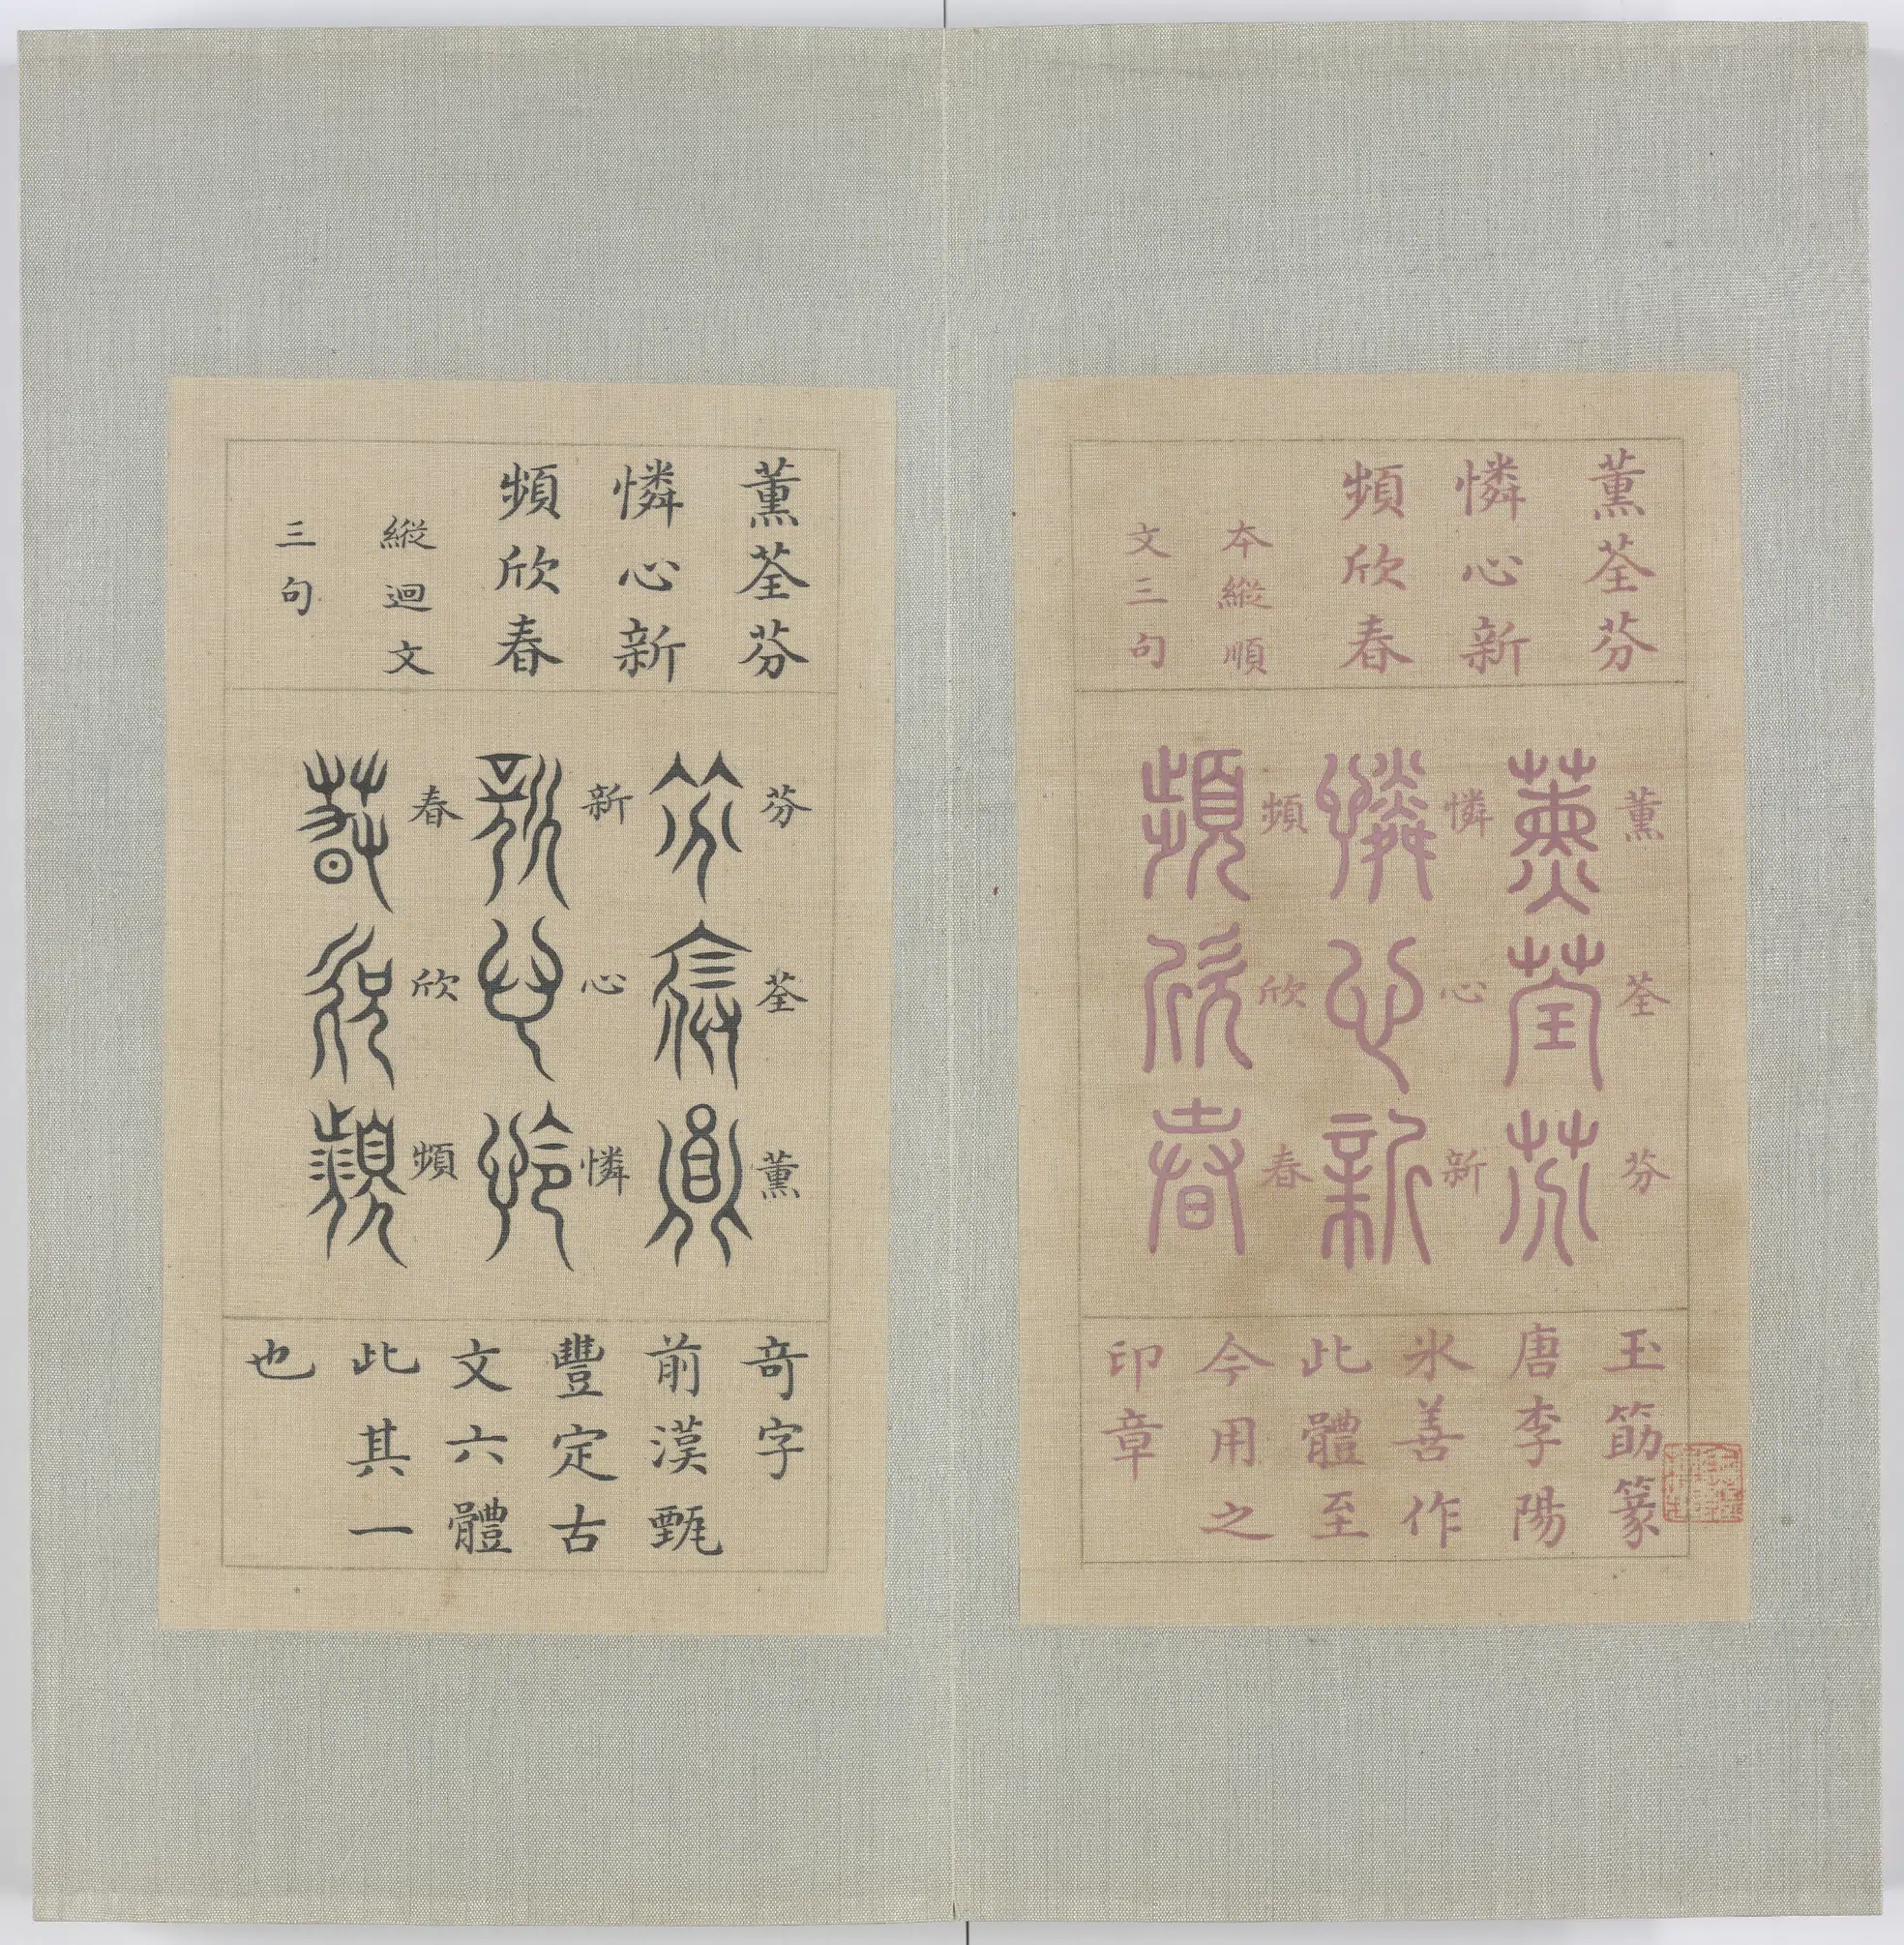 薰荃芬
憐心新
頻欣春
本縱順
文三句
薰荃芬
薰荃芬
憐心新
憐心新
頻欣春
頻欣春
玉筯篆
唐李陽
氷善作
此體至
今用之
印章
薰荃芬
憐心新
頻欣春
縱迴文
三句
芬荃薰
芬荃薰
新心憐
新心憐
春欣頻
春欣頻
奇字
前漢甄
豐定古
文六體
此其一
也